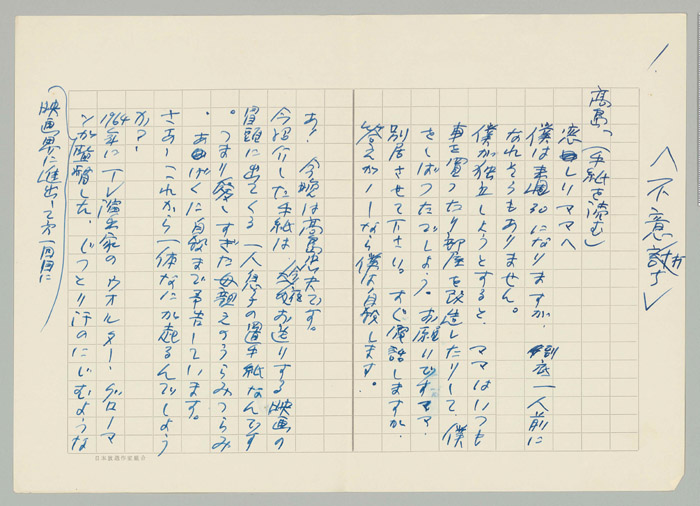 〈不意討ち〉
高島「(手紙を読む)
恋しいママへ
僕は来週30になりますが、到底一人前に
なれそうもありません。
僕が独立しようとすると、ママはいつも
車を買ったり部屋を改造したりして、僕
をしばったでしょう。お願いですママ、
別居させて下さい。すぐ電話しますが、
答えがノーなら僕は自殺します。
あ、今晩は高島忠夫です。
今紹介した手紙は、今夜お送りする映画の
冒頭に出てくる一人息子の置手紙なんです
。つまり愛しすぎた母親えのうらみつらみ
、あげくに自殺まで予告しています。
さあーこれから一体なにが起るんでしよう
か?
1964年にTV演出家のウオルター・グローマ
ンが監督した、じっとり汗のにじむような
映画界に進出して第一回目に
日本放送作家組合